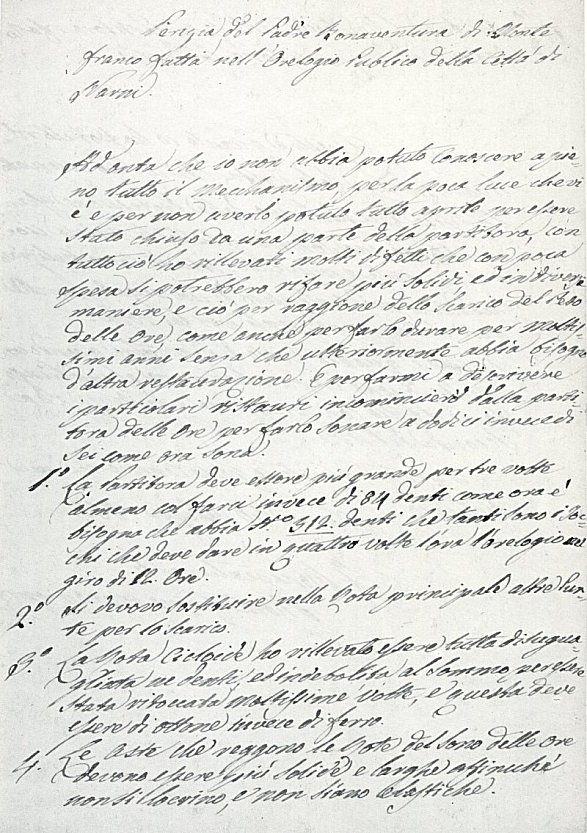 Perizia del Padre Bonaventura di Monte
franco fatta nell'Orologio Publico della Città di
Narni.
Ad onta che io non abbia potuto conoscere a pie-
no tutto il mechanismo, per la poca luce che vi
è e per non averlo potuto tutto aprire per essere
stato chiuso da una parte della partitora, con
tutto ciò ho rillevati molti difetti che con poca
spesa si potrebbero rifare più solidi, ed in diverse
maniere, e ciò per raggione dello scarico del
delle Ore, come anche per farlo durare per moltis
simi anni senza che ulteriormente abbia bisogno
d'altra restaurazione. E per farmi a descrivere
i particolari ristauri incomincierò dalla parti
tora delle Ore per farlo sonare a dodici invece di
sei come ora sona.
1.º La Partitora deve essere più grande per tre volte
almeno col farci invece di 84 denti come ora è
bisogna che abbia Nº 312 denti che tanti sono i toc
chi che deve dare in quattro volte l'ora l'orologio nel
giro di 12 Ore.
2.º Si devovo sostituire nella Rota principale altre Pun-
te per lo scarico.
3.º La Rota ho rillevato essere tutta disugua-
gliata ne denti, ed indebolita al sommo, per essere
stata ritoccata moltissime volte, e questa deve
essere di ottone invece di ferro.
4. Le Aste che reggono le Rote del sono delle Ore
devono essere più solide e larghe affinché
non si, e non siano elastiche.